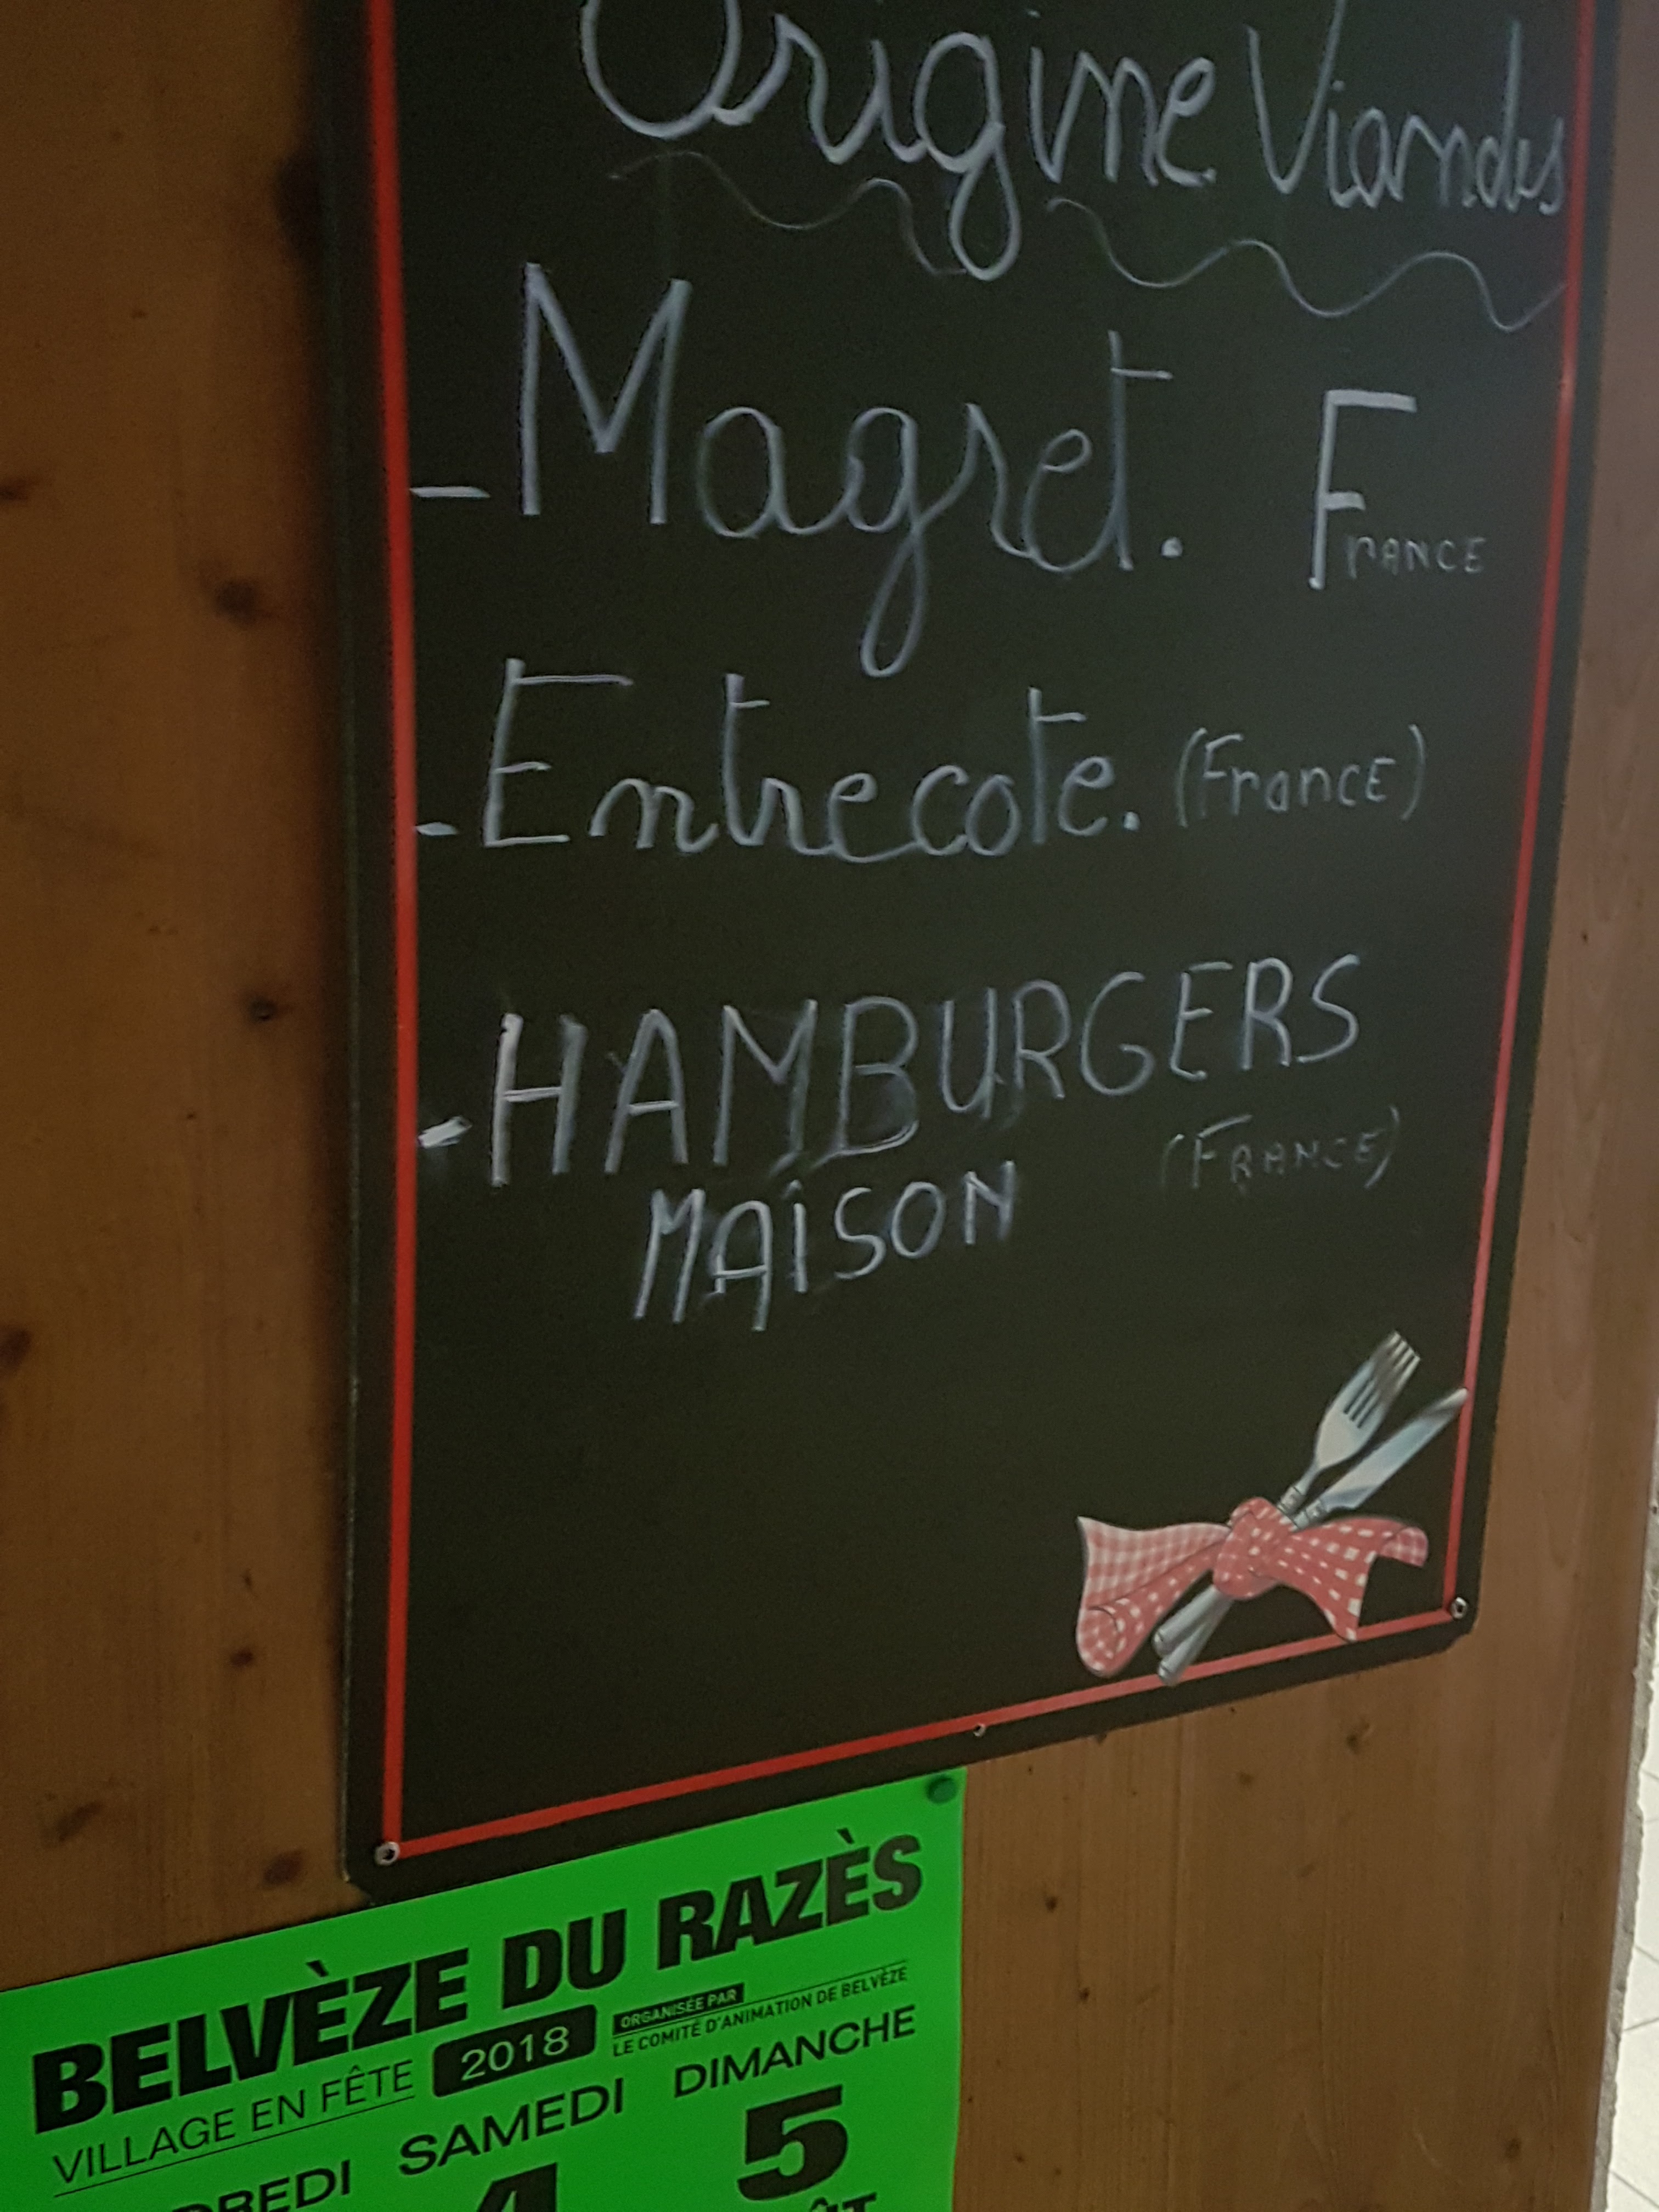 Origine Viandes
- Magret. FRANCE
- Entrecote. (France)
- HAMBURGERS
MAISON (FRANCE)
BELVÈZE DU RAZÈS
VILLAGE EN FÊTE 2018 ORGANISÉE PAR
LE COMITÉ D'ANIMATION DE BELVÈZE
SAMEDI DIMANCHE
4 5